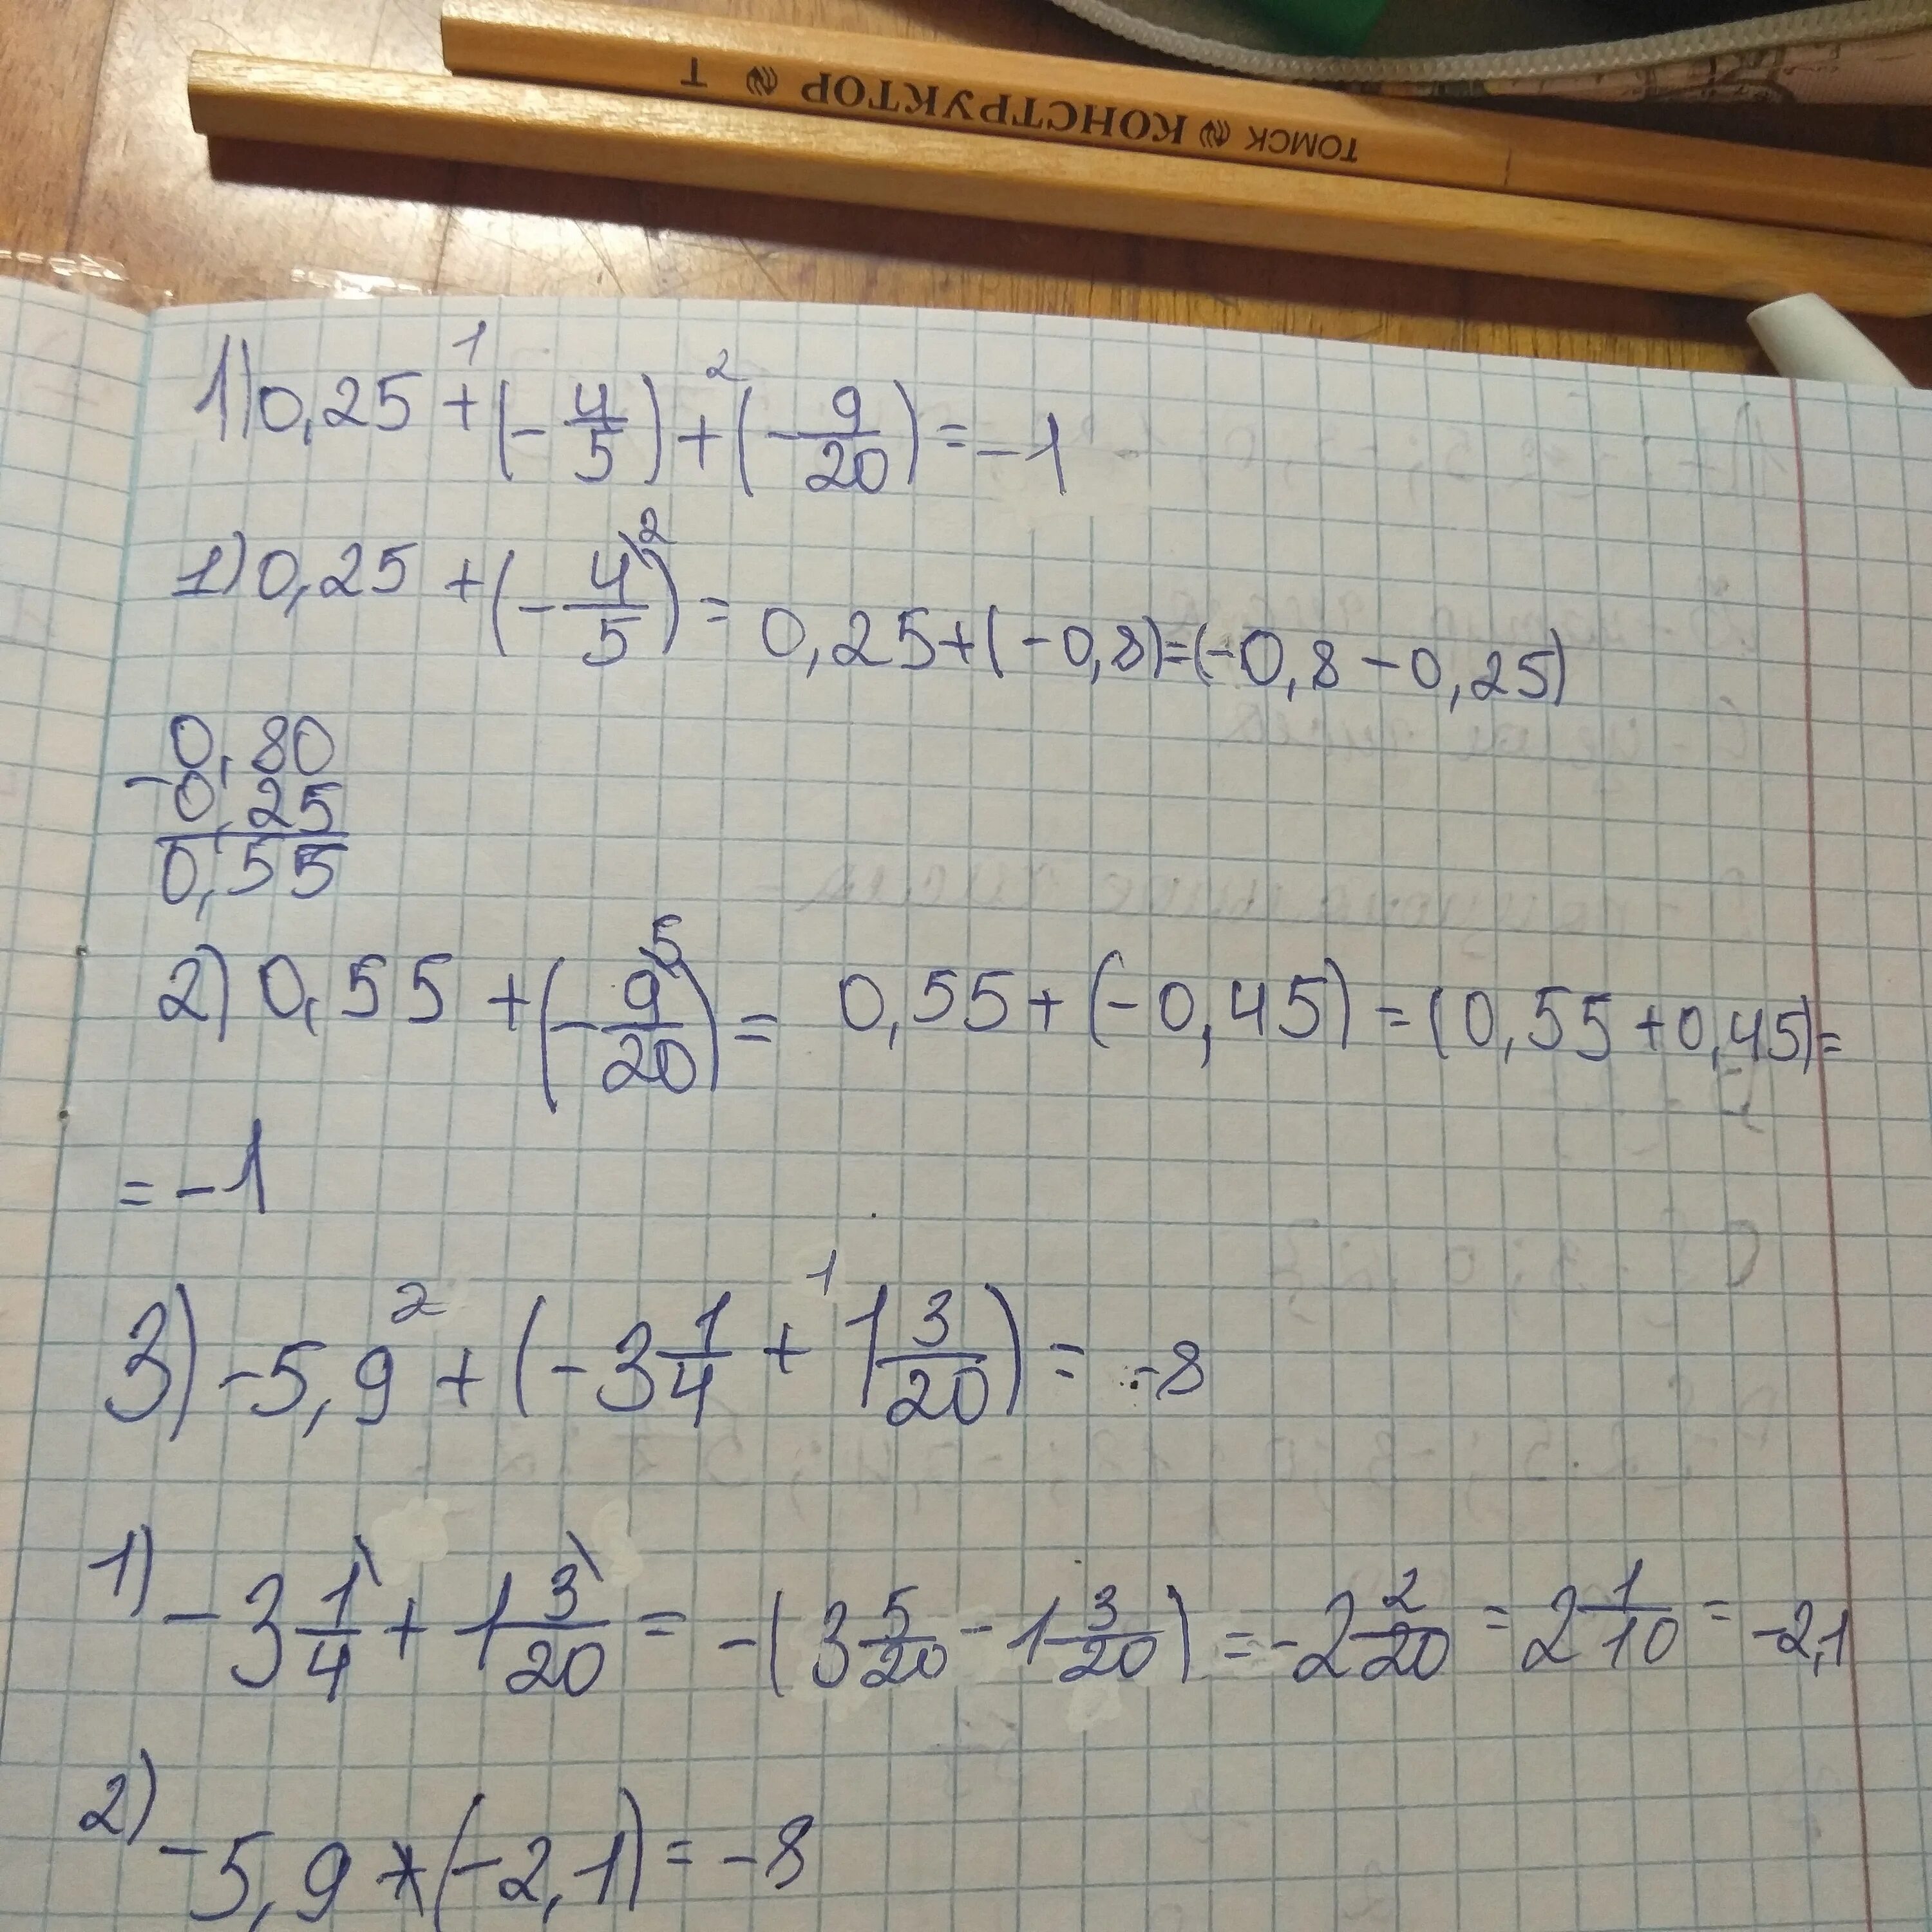 ТОМСК КОНСТРУКТОР Т
1) 0,25 +¹ (-4/5) +² (-9/20) = -1
1) 0,25 + (-4/5)² = 0,25 + (-0,8) = (-0,8 - 0,25)
0,80
- 0,25
0,55
2) 0,55 + (-9/20)⁵ = 0,55 + (-0,45) = (0,55 + 0,45) =
= -1
3) -5,9 +² (-3 1/4 +¹ 1 3/20) = -8
1) -3 1/4 + 1 3/20 = -(3 5/20 - 1 3/20) = -2 2/20 = 2 1/10 = -2,1
2) -5,9 + (-2,1) = -8